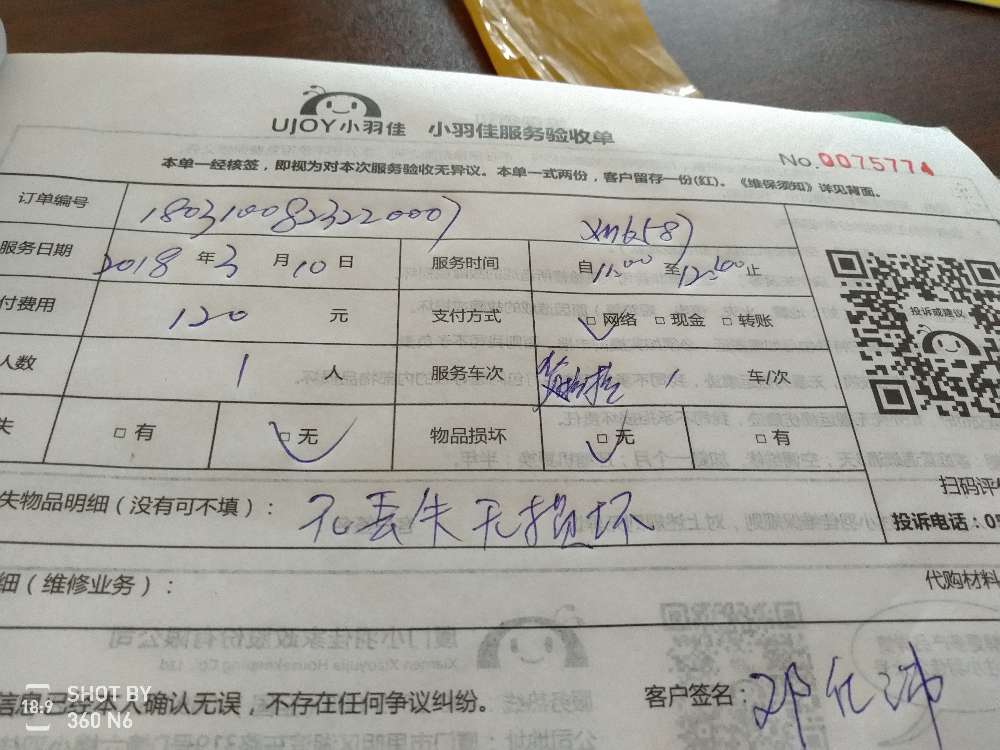 UJOY小羽佳 小羽佳服务验收单
No.0075774
本单一经核签，即视为对本次服务验收无异议。本单一式两份，客户留存一份(红)。《维保须知》详见背面。
订单编号 1803100823220007 xm6587
服务日期 2018 年 3 月 10 日 服务时间 自 11:00 至 12:00 止
付费用 120 元 支付方式 □网络 □现金 □转账
人数 1 人 服务车次 1 车/次
失 □有 □无 物品损坏 □无 □有
投诉或建议
扫码评
失物品明细（没有可不填）： 无丢失无损坏
投诉电话：0
细（维修业务）：
代购材料
信息已经本人确认无误，不存在任何争议纠纷。
客户签名：
SHOT BY
360 N6
18:9